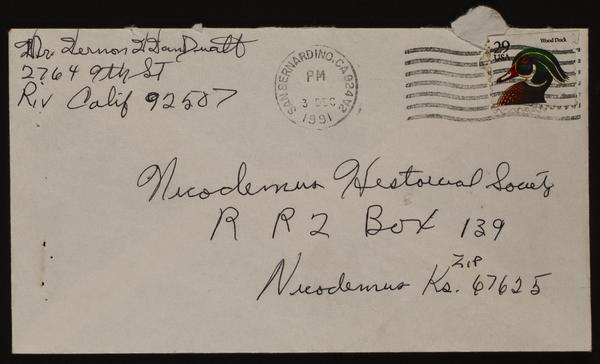 2764 9th St
Riv Calif 92507
SAN BERNARDINO, CA 924
PM
3 DEC
1991
29
USA
Wood Duck
Nicodemus Historical Society
R R 2 Box 139
Zip
Nicodemus Ks. 67625